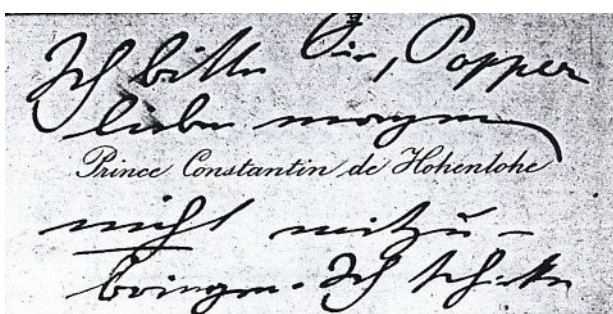 Ich bitte Sie, Popper
lieber morgen
Prince Constantin de Hohenlohe
nicht mitzu-
bringen. Ich schicke